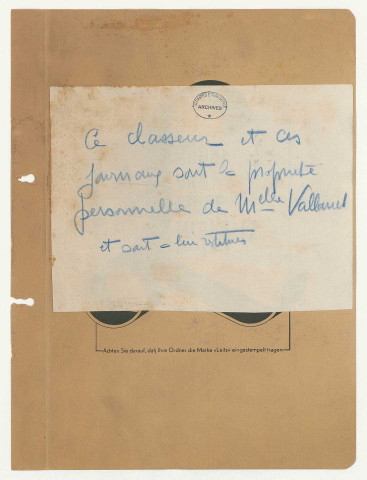 ARCHIVES
Ce classeur et ces
journaux sont la propriété
personnelle de Melle Vallanet
et sont à lui restituer
Achten Sie darauf, daß Ihre Ordner die Marke »Leitz« eingestempelt tragen